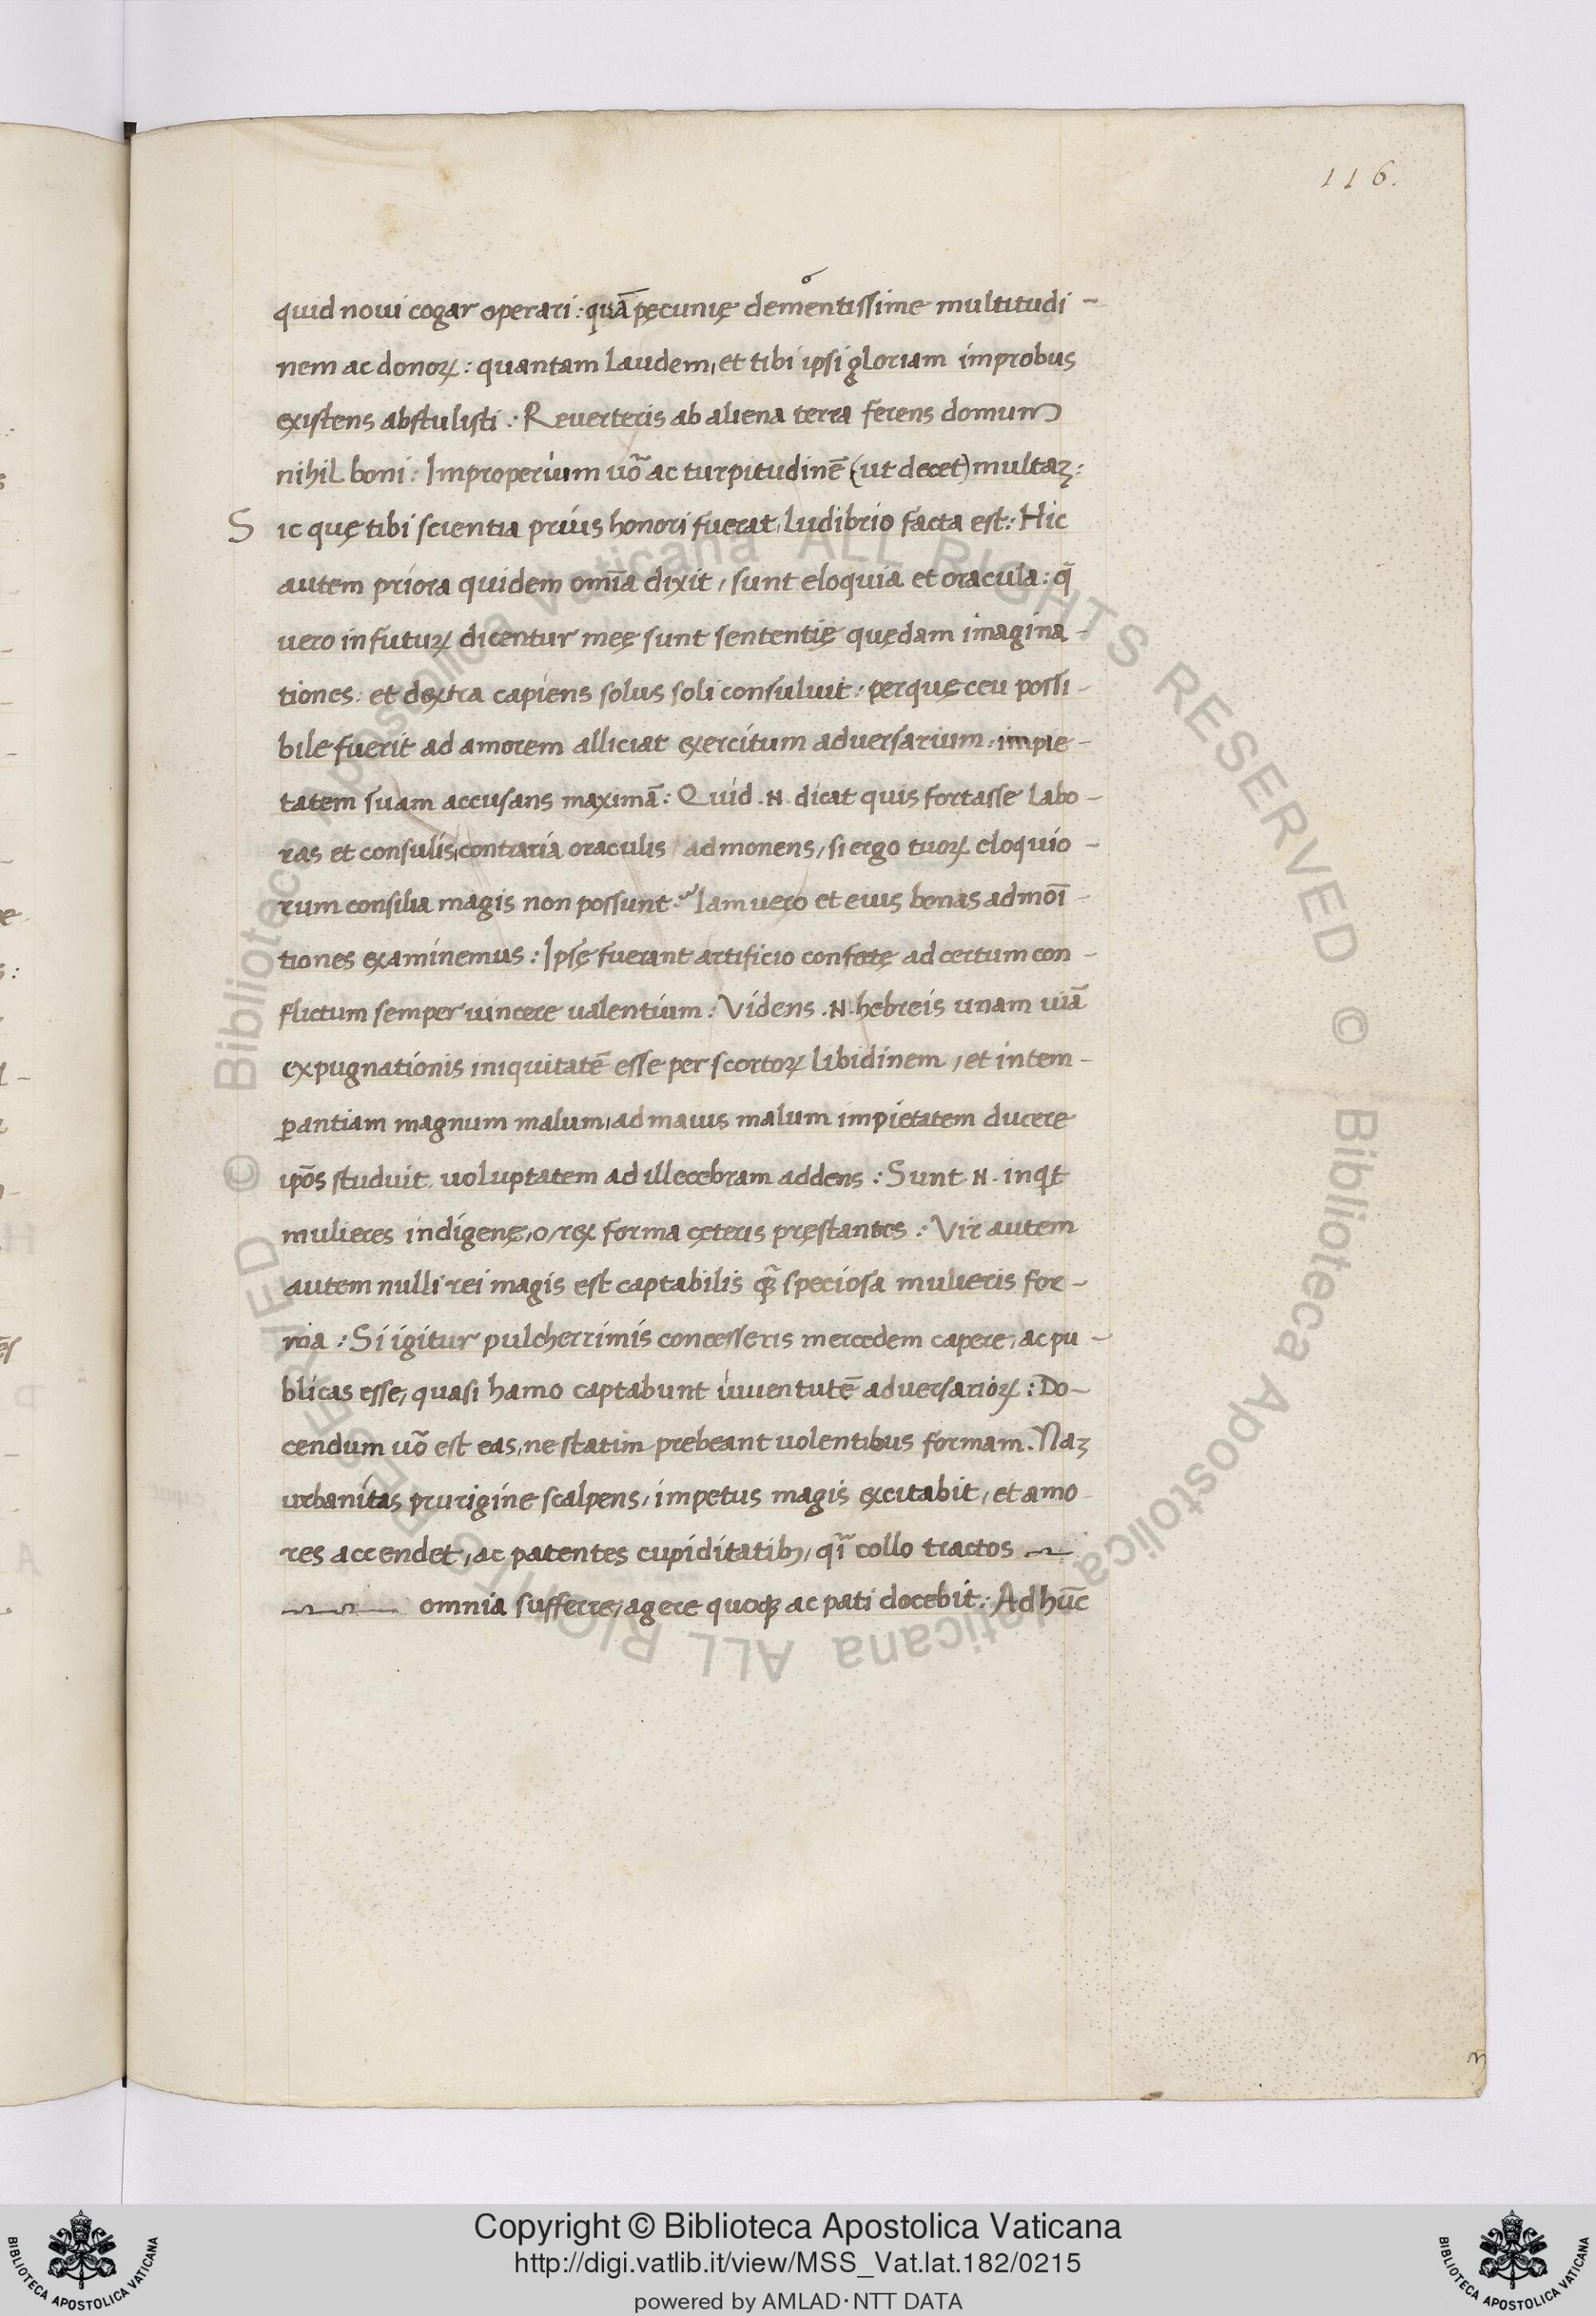 116.
quid noui cogar operari : quā pęcunię dementissime multitudi -
nem ac donoꝝ : quantam laudem, et tibi ipsi gloriam improbus
existens abstulisti : Reuerteris ab aliena terra ferens domum
nihil boni : Improperium uō ac turpitudinē (ut decet) multaꝫ :
Sic quę tibi scientia prius honori fuerat, ludibrio facta est : Hic
autem priora quidem omīa dixit, sunt eloquia et oracula : q̄
vero in futuꝝ dicentur meę sunt sententię quędam imagina -
tiones : et dextra capiens solus soli consuluit : per quę ceu possi -
bile fuerit ad amorem alliciat exercitum aduersarium : impie -
tatem suam accusans maximā : Quid .N. dicat quis fortasse labo -
ras et consulis, contraria oraculis admonens, si ergo tuoꝝ eloquio -
rum consilia magis non possunt. Iam uero et eius bonas admoī -
tiones examinemus : Ipsę fuerant artificio confectę ad certum con -
flictum semper uincere ualentium : Videns .N. hebreis unam uiā
expugnationis iniquitatē esse per scortoꝝ libidinem, et intem -
ꝑantiam magnum malum, ad maius malum impietatem ducere
ip̄os studuit, uoluptatem ad illecebram addens : Sunt .N. inqt
mulieres indigenę, o, rex forma cęteris pręstantes : Vir autem
autem nulli rei magis est captabilis qꝫ̄ speciosa mulieris for -
ma : Si igitur pulcherrimis concesseris mercedem capere, ac pu -
blicas esse, quasi hamo captabunt iuuentutē aduersarioꝝ : Do -
cendum uō est eas, ne statim prebeant uolentibus formam. Naꝫ
urbanitas prurigine scalpens, impetus magis excitabit, et amo
res accendet, ac patentes cupiditatibꝫ, qī collo tractos
omnia sufferre, agere quoqꝫ ac pati docebit : Ad hūc
Copyright © Biblioteca Apostolica Vaticana
http://digi.vatlib.it/view/MSS_Vat.lat.182/0215
powered by AMLAD·NTT DATA